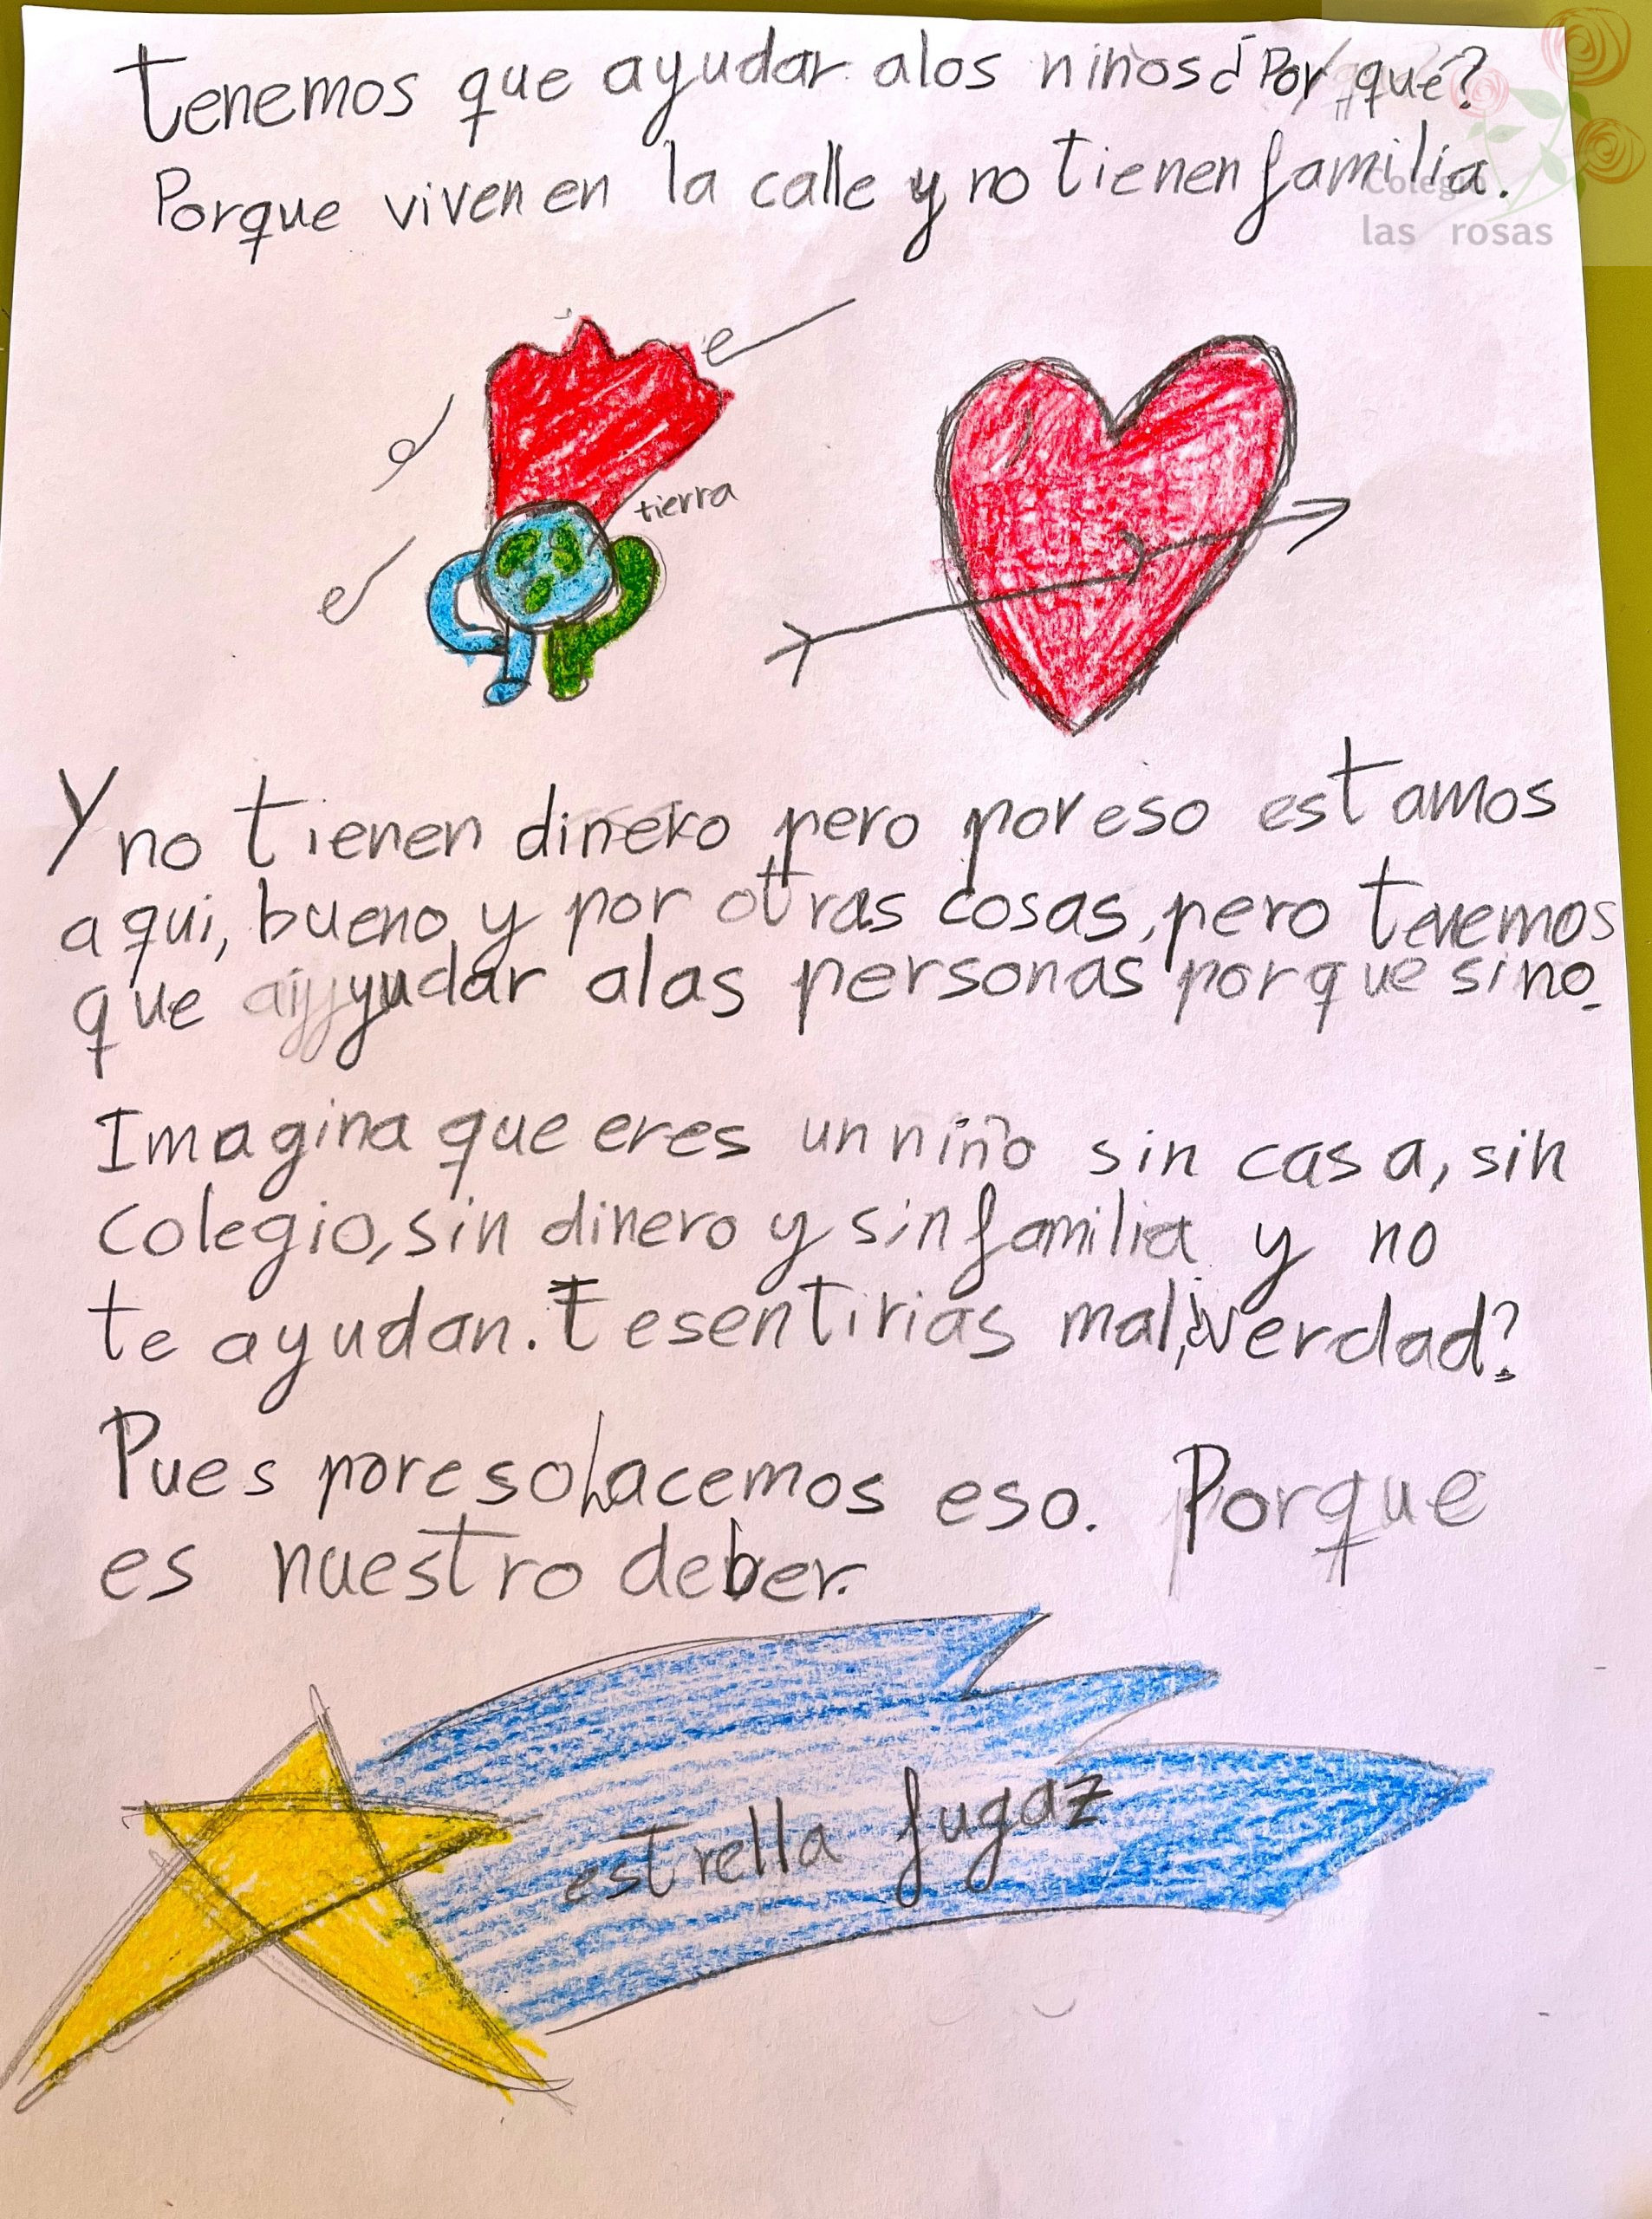 tenemos que ayudar alos niños ¿Por qué?
Porque viven en la calle y no tienen familia.
Colegio
las rosas
tierra
Y no tienen dinero pero por eso estamos
aqui, bueno y por otras cosas, pero tenemos
que ayudar alas personas porque sino.
Imagina que eres un niño sin casa, sin
colegio, sin dinero y sin familia y no
te ayudan. Te sentirias mal, ¿verdad?
Pues por eso hacemos eso. Porque
es nuestro deber.
estrella fugaz